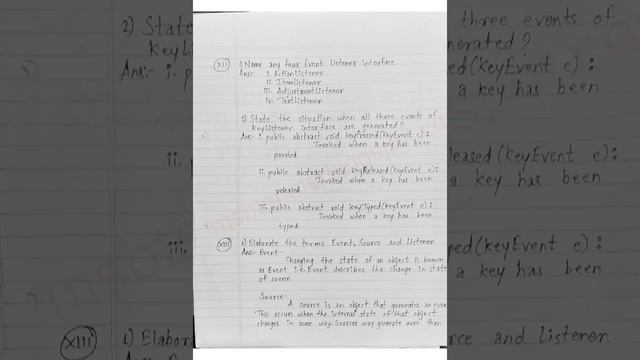 XII 1) Name any four Event Listener interface
Ans:- i. ActionListener
ii. ItemListener
iii. AdjustmentListener
iv. TextListener
2) State the situation when all three events of
KeyListener interface are generated?
Ans:- i. public abstract void keyPressed(KeyEvent e):
Invoked when a key has been
pressed.
ii. public abstract void keyReleased(keyEvent e):
Invoked when a key has been
released.
iii. public abstract void keyTyped(keyEvent e):
Invoked when a key has been
typed.
XIII 1) Elaborate the terms Event, Source and Listener
Ans:- Event:-
Changing the state of an object is known
as Event i.e. Event describes the change in state
of source.
Source:-
A source is an object that generates an event
This occurs when the internal state of that object
changes in some way. Sources may generate more than